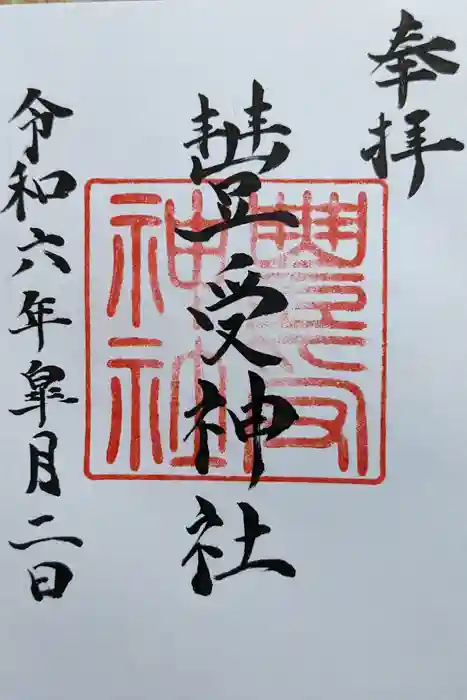 奉拝
豐受神社
令和六年皐月二日
豐受
神社